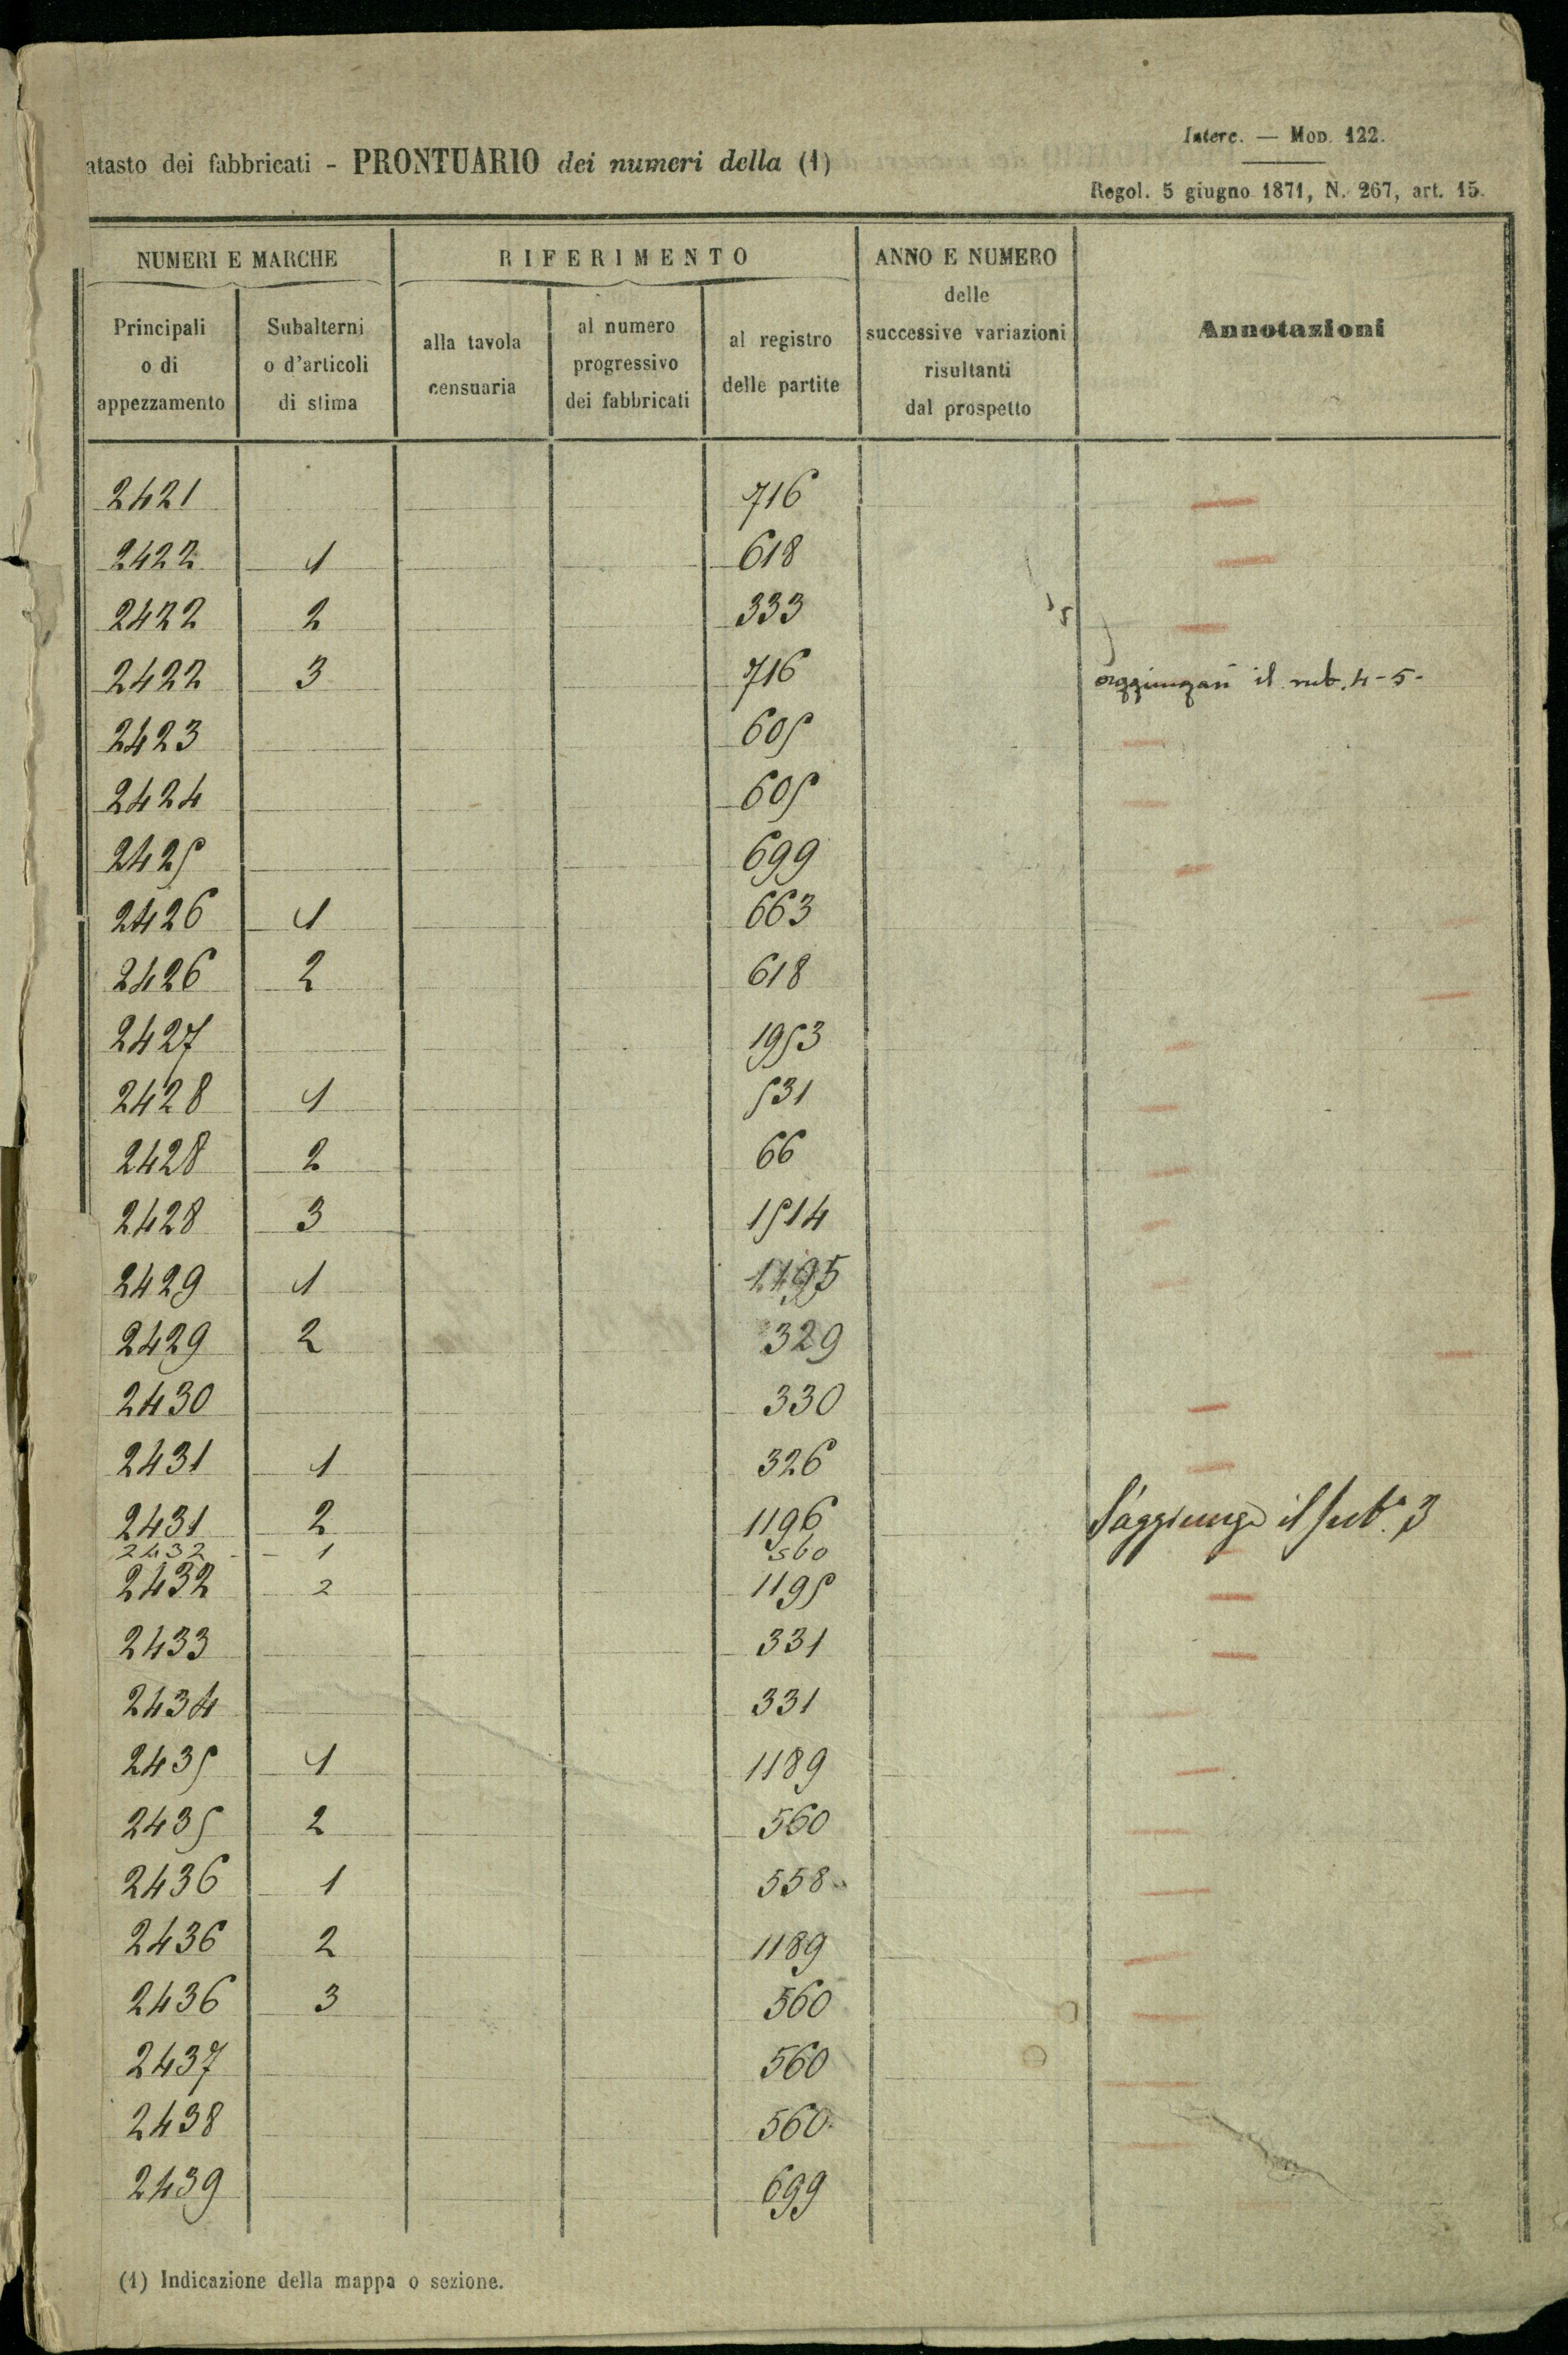 atasto dei fabbricati - PRONTUARIO dei numeri della (1)
Interc. — Mod. 122.
Regol. 5 giugno 1871, N. 267, art. 15.
NUMERI E MARCHE
RIFERIMENTO
ANNO E NUMERO
delle
successive variazioni
risultanti
dal prospetto
Annotazioni
Principali
o di
appezzamento
Subalterni
o d'articoli
di stima
alla tavola
censuaria
al numero
progressivo
dei fabbricati
al registro
delle partite
2421 716
2422 1 618
2422 2 333
2422 3 716 aggiungasi il sub. 4-5-
2423 605
2424 605
2425 699
2426 1 663
2426 2 618
2427 1953
2428 1 531
2428 2 66
2428 3 1514
2429 1
2429 2 329
2430 330
2431 1 326
2431 2 1196 S'aggiunge il sub. 3
2432 - - 1 560
2432 2 1195
2433 331
2434 331
2435 1 1189
2435 2 560
2436 1 558
2436 2 1189
2436 3 560
2437 560
2438 560
2439 699
(1) Indicazione della mappa o sezione.